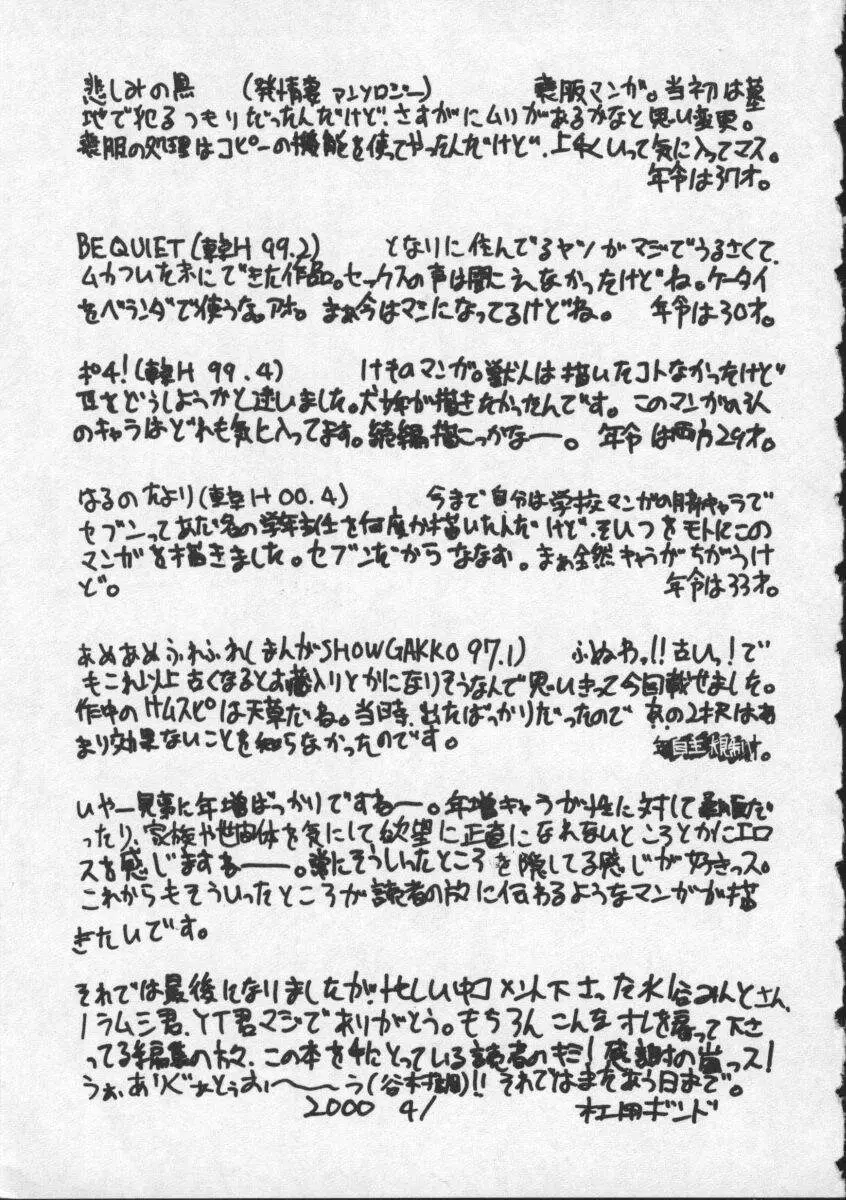 悲しみの黒　(発情妻アンソロジー)　喪服マンガ。当初は墓
地で犯るつもりだったんだけど、さすがにムリがあるかなと思い変更。
喪服の処理はコピーの機能を使ってやったんだけど、上手くいって気に入ってマス。
年令は37才。
BE QUIET (華H 99.2)　となりに住んでるヤツがマジでうるさくて、
ムカついた末にできた作品。セックスの声は聞こえなかったけどね。ケータイ
をベランダで使うな。アホ。まぁ今はマシになってるけどね。　年令は30才。
ポチ!(華H 99.4)　けものマンガ。獣人は描いたコトなかったけど
耳をどうしようかと迷いました。犬が描きたかったんです。このマンガの3人
のキャラはどれも気に入ってます。続編描こっかなー。年令は両方29才。
はるのたより(華H 00.4)　今まで自分は学校マンガの脇キャラで
セブンってあだ名の学年主任を何度か描いたんだけど、そいつをモトにこの
マンガを描きました。セブンだからななお。まぁ全然キャラがちがうけ
ど。　年令は33才。
あめあめふれふれ(まんがSHOWGAKKO 97.1)　ふぬわっ!!古いっ!で
もこれ以上古くなるとお蔵入りとかになりそうなんで思いきって今回載せました。
作中のサムスピは天草だね。当時、出たばっかりだったので あの2択はあ
まり効果ないことを知らなかったのです。　年自主規制才。
いやー見事に年増ばっかりですねー。年増キャラが性に対して だ
ったり、家族や世間体を気にして欲望に正直になれないところとかにエロ
スを感じますねー。常にそういったところを隠してる感じが好きっス。
これからもそういったところが読者の方々に伝わるようなマンガが描
きたいです。
それでは最後になりましたが、忙しい中コメント下さった水谷みんとさん、
ラムニ君、YT君マジでありがとう。もちろんこんなオレを雇って下さ
ってる編集の方々、この本を手にとっている読者のキミ!感謝の嵐っス!
うぉ、ありぐぁとぅおぉ〜う(谷村)!!それではまたあう日まで。
2000 4/　杜田ボンド